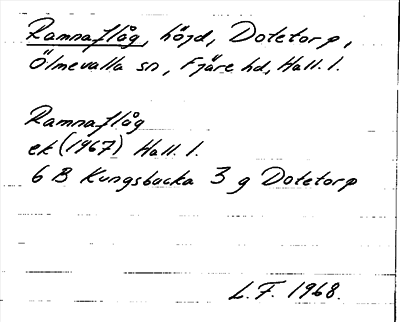 Ramnaflåg, höjd, Dotetorp,
Ölmevalla sn, Fjäre hd, Hall. l.
Ramnaflåg
ek (1967) Hall. l.
6 B Kungsbacka 3 g Dotetorp
L.F. 1968.